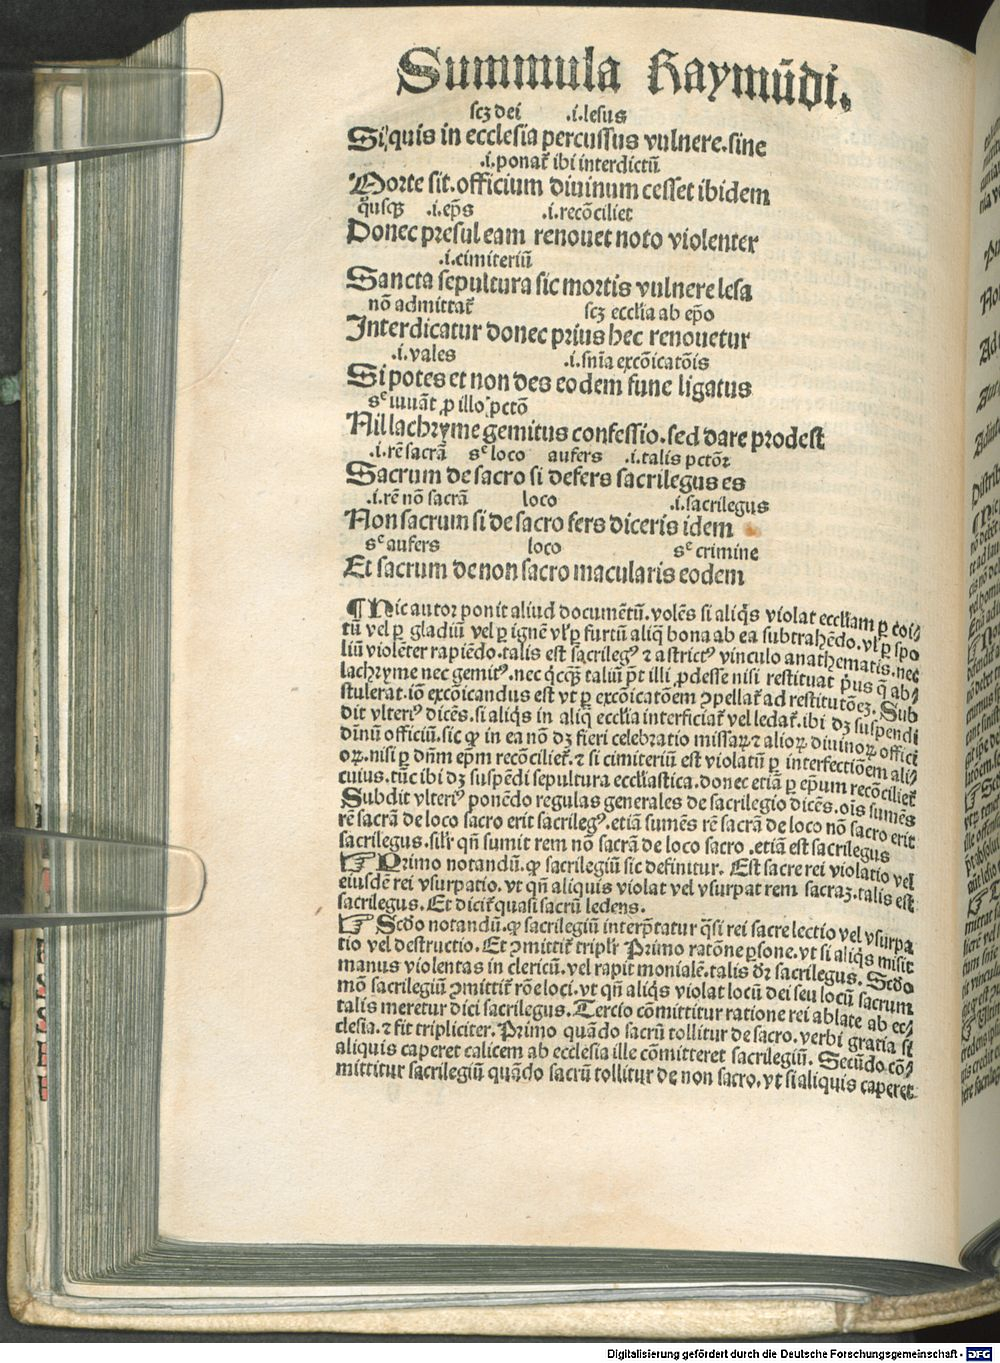 Summula Raymūdi.
scꝫ dei .i. lesus
Si quis in ecclesia percussus vulnere. sine
.i. ponat᷑ ibi interdictū
Morte sit. officium diuinum cesset ibidem
qͥusqꝫ .i. ep̄s .i. recōciliet
Donec presul eam renouet noto violenter
.i. cimiteriū
Sancta sepultura sic mortis vulnere lesa
nō admittat᷑ scꝫ ecclīa ab ep̄o
Interdicatur donec prius hec renouetur
.i. vales .i. sn̄ia excōicatōis
Si potes et non des eodem fune ligatus
sᶜ iuuāt ꝓ illo pctō
Nil lachryme gemitus confessio. sed dare prodest
.i. rē sacrā sᶜ loco aufers .i. talis pctōꝛ
Sacrum de sacro si defers sacrilegus es
.i. rē nō sacrā loco .i. sacrilegus
Non sacrum si de sacro fers diceris idem
sᶜ aufers loco sᶜ crimine
Et sacrum de non sacro macularis eodem
¶ Hic autor ponit aliud documētū. volēs si aliqͥs violat eccliam ꝑ coi/
tū vel ꝑ gladiū vel ꝑ ignē vl' ꝑ furtū aliqͣ bona ab ea subtrahēdo. vl' ꝑ spo
liū violēter rapiēdo. talis est sacrilegꝰ ⁊ astrictꝰ vinculo anathematis. nec
lachryme nec gemitꝰ. nec qͥcqͣꝫ taliū pͭt illi ꝓdesse nisi restituat pͥus qͣ̄ ab/
stulerat. iō excōicandus est vt ꝑ excōicatōem ꝯpellat᷑ ad restitutōeꝫ. Sub
dit vlteriꝰ dicēs. si aliqͥs in aliqͣ ecclīa interficiat᷑ vel ledat᷑. ibi dꝫ suspendi
diuinū officiū. sic ꝙ in ea nō dꝫ fieri celebratio missaꝝ ⁊ alioꝝ diuinoꝝ offici
oꝝ. nisi ꝑ dn̄m ep̄m recōciliet᷑. ⁊ si cimiteriū est violatū ꝑ interfectiōem ali/
cuius. tūc ibi dꝫ suspēdi sepultura eccl̄iastica. donec etiā ꝑ ep̄um recōciliet᷑
Subdit vlteriꝰ ponēdo regulas generales de sacrilegio dicēs. oīs sumēs
rē sacrā de loco sacro erit sacrilegꝰ. etiā sumēs rē sacrā de loco nō sacro erit
sacrilegus. sil'r qn̄ sumit rem nō sacrā de loco sacro. etiā est sacrilegus
☞ Primo notandū. ꝙ sacrilegiū sic definitur. Est sacre rei violatio vel
eiusdē rei vsurpatio. vt qn̄ aliquis violat vel vsurpat rem sacraꝫ. talis est
sacrilegus. Et dicit᷑ quasi sacrū ledens.
☞ Scd̄o notandū. ꝙ sacrilegiū interp̄tatur qͣsi rei sacre lectio vel vsurpa
tio vel destructio. Et ꝯmittit᷑ tripl'r Primo ratōne ꝑsone. vt si aliqͥs misit
manus violentas in clericū. vel rapit monialē. talis dr̄ sacrilegus. Scd̄o
mō sacrilegiū ꝯmittit᷑ rōe loci. vt qn̄ aliqͥs violat locū dei seu locū sacrum
talis meretur dici sacrilegus. Tercio cōmittitur ratione rei ablate ab ec/
clesia. ⁊ fit tripliciter. Primo quādo sacrū tollitur de sacro. verbi gratia si
aliquis caperet calicem ab ecclesia ille cōmitteret sacrilegiū. Secūdo cō/
mittitur sacrilegiū quādo sacrū tollitur de non sacro. vt si aliquis caperet
Digitalisierung gefördert durch die Deutsche Forschungsgemeinschaft - DFG